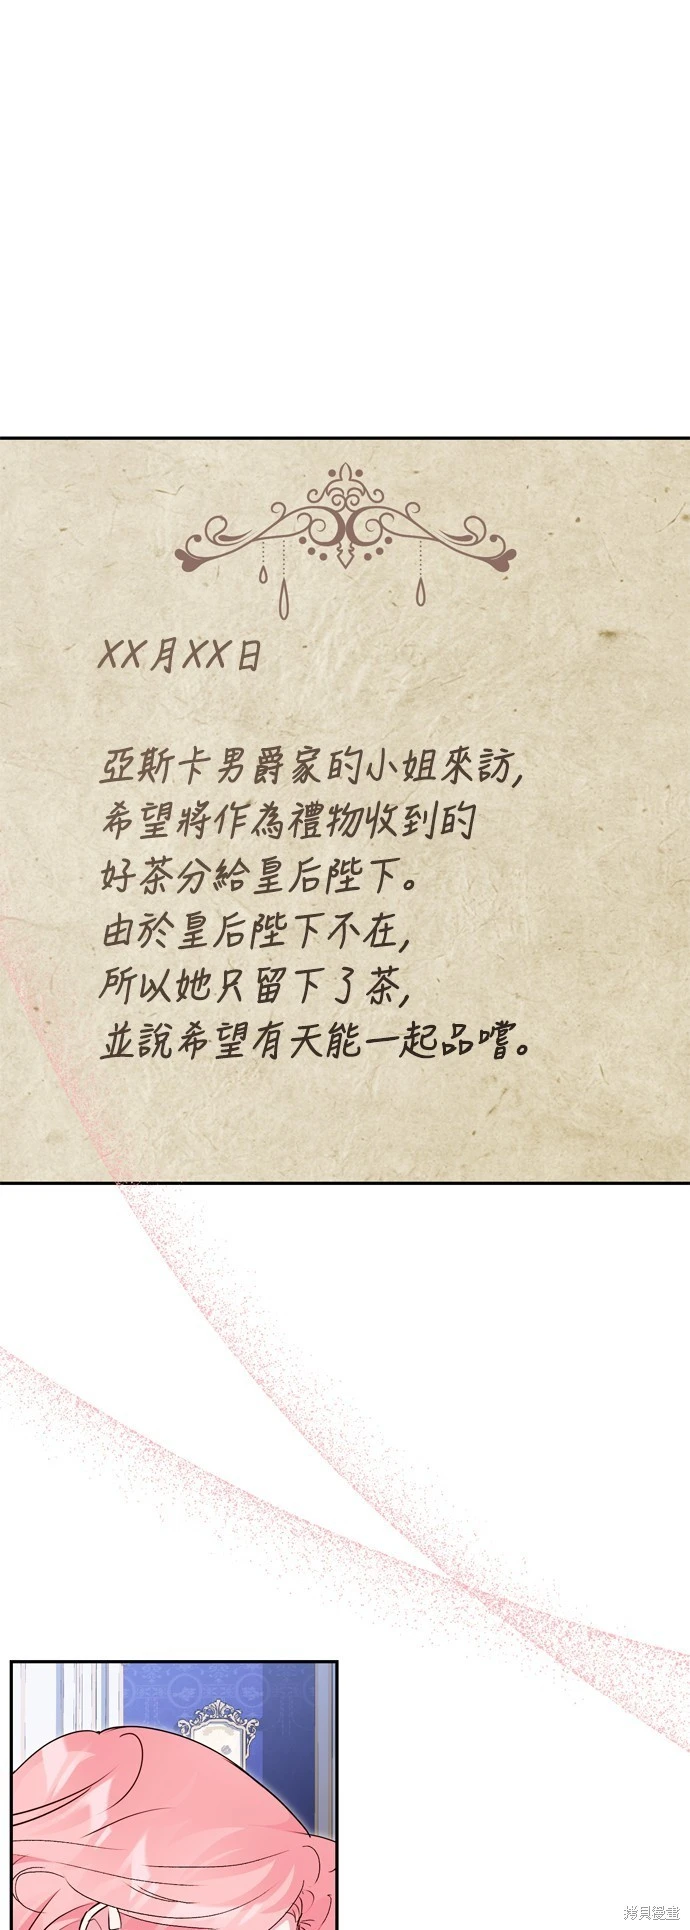 XX月XX日
亞斯卡男爵家的小姐來訪,
希望將作為禮物收到的
好茶分給皇后陛下。
由於皇后陛下不在,
所以她只留下了茶,
並說希望有天能一起品嚐。
拷貝漫畫